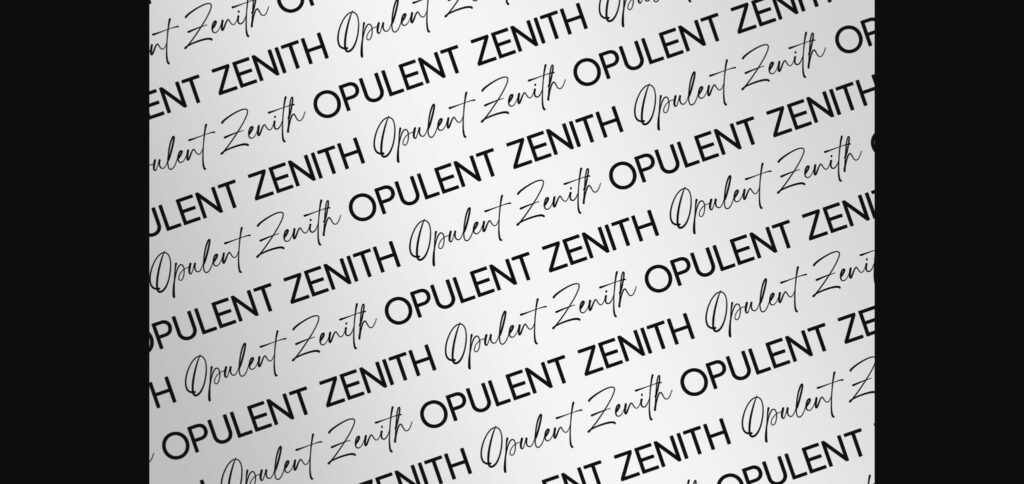 nt Zenith
ENT ZENITH Opulent
ulent Zenith OPULENT ZENITH
ULENT ZENITH Opulent Zenith OPULENT ZENIT
Opulent Zenith OPULENT ZENITH Opulent Zenith OP
OPULENT ZENITH Opulent Zenith OPULENT ZENITH
H Opulent Zenith OPULENT ZENITH Opulent Zenith
OPULENT ZENITH Opulent Zenith OPULENT ZENI
Opulent Zenith OPULENT ZENITH Opulent Zeni
ENT ZENITH Opulent Zenith OPULENT ZE
ENT ZENITH Opulent Ze
OPULENT